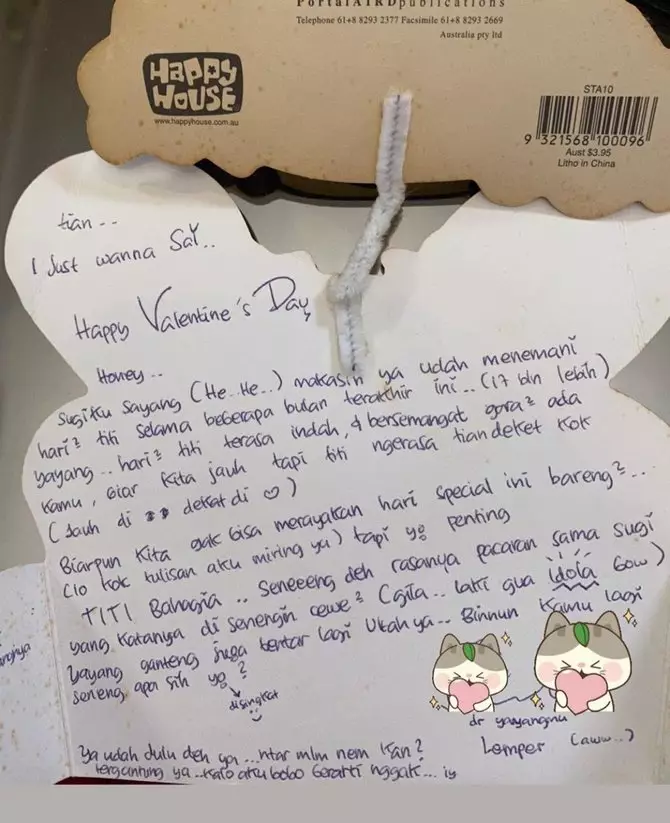 PortalAIRDpublications
Telephone 61+8 8293 2377 Facsimile 61+8 8293 2669
Australia pty ltd
Happy
House
www.happyhouse.com.au
STA10
9 321568 100096
Aust $3.95
Litho in China
tian--
I Just wanna Say..
Happy Valentine's Day
Honey..
Sugiku Sayang (He..He..) makasih ya udah menemani
hari² titi selama beberapa bulan terakhir ini.. (17 bln lebih)
yayang.. hari² titi terasa indah, & bersemangat gara² ada
kamu, biar kita jauh tapi titi ngerasa tian deket kok
(Jauh di dekat di ♡)
Biarpun Kita gak bisa merayakan hari special ini bareng²...
(lo kok tulisan aku miring ya) tapi yg penting
TITI Bahagia.. Seneeeng deh rasanya pacaran sama sugi
yang katanya di senengin cewe² (gila.. laki gua idola bow)
Yayang ganteng juga bentar lagi Ultah ya.. Binnun Kamu lagi
seneng apa sih yg?
disingkat
dr yayangmu
Lemper (aww..)
Ya udah dulu deh ya...ntar mlm nem kan?
tergantung ya..kalo aku bobo berarti nggak...